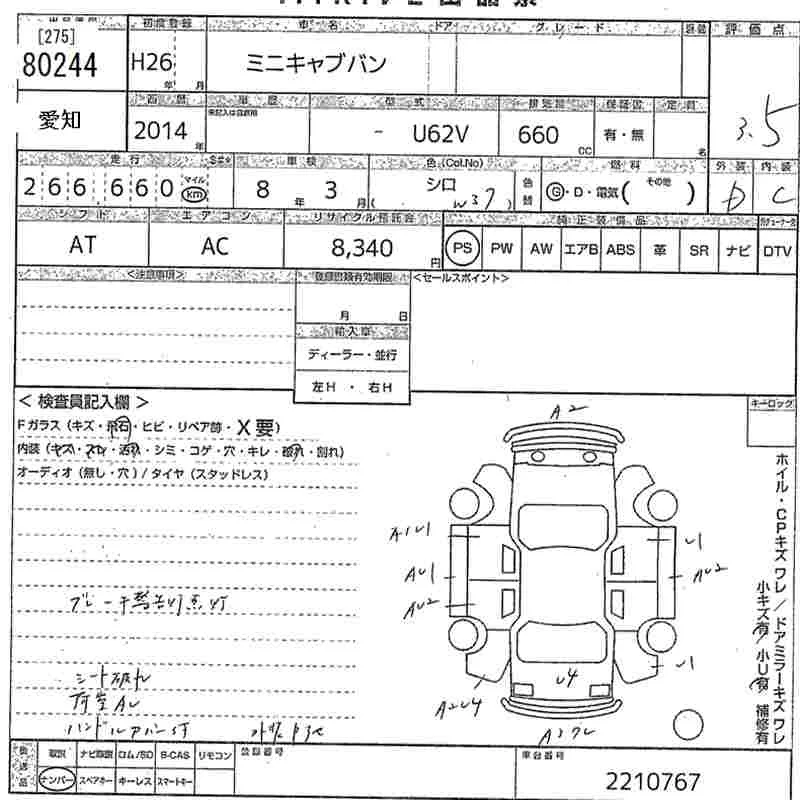 [275]
80244
初度登録
車名
ドア
グレード
評価点
H26
年 月
ミニキャブバン
3.5
愛知
西暦
車歴
型式
排気量
保証書
定員
2014
年
- U62V
660
cc
有・無
名
走行
車検
色(Col.No)
燃料
外装
内装
266,660
マイル
km
8
年
3
月
シロ
( W37 )
色替
G・D・電気(その他 )
D
C
シフト
エアコン
リサイクル預託金
純正装備品
AT
AC
8,340
円
PS
PW
AW
エアB
ABS
革
SR
ナビ
DTV
<注意事項>
登録書類有効期限
<セールスポイント>
月 日
輸入車
ディーラー・並行
左H ・ 右H
< 検査員記入欄 >
キーロック
Fガラス(キズ・飛石・ヒビ・リペア跡・X要)
内装(キズ・スレ・汚れ・シミ・コゲ・穴・キレ・破れ・割れ)
オーディオ(無し・穴)/タイヤ(スタッドレス)
A2
U1
U1
AU1
AU2
AU2
U1
U4
A2U4
ブレーキ警告灯点灯
シート破れ
荷室AU
ホイル・CPキズ ワレ/ドアミラーキズ ワレ
小キズ有/小U有 補修有
後送品
取説
ナビ取説
ロム/SD
B-CAS
リモコン
登録番号
車台番号
ナンバー
スペアキー
キーレス
スマートキー
2210767